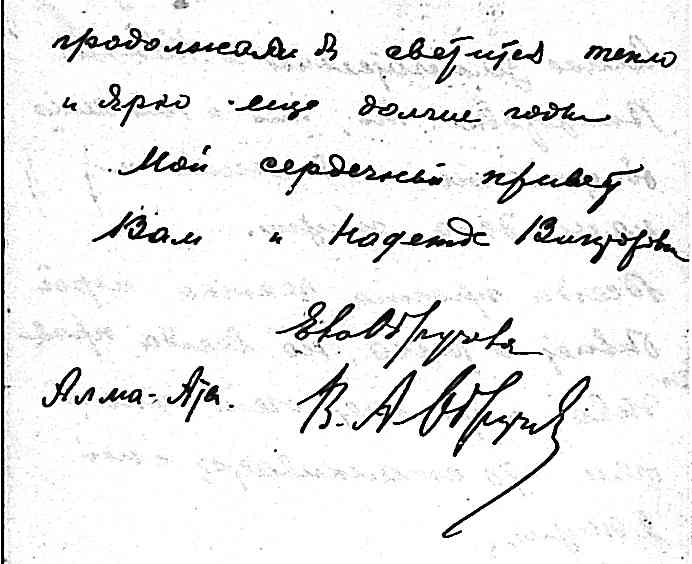 продолжали светится тепло
и ярко еще долгие годы
Мой сердечный привет
Вам и Надежде Викторовне
Ева Обручева
Алма-Ата. В. А. Обручев